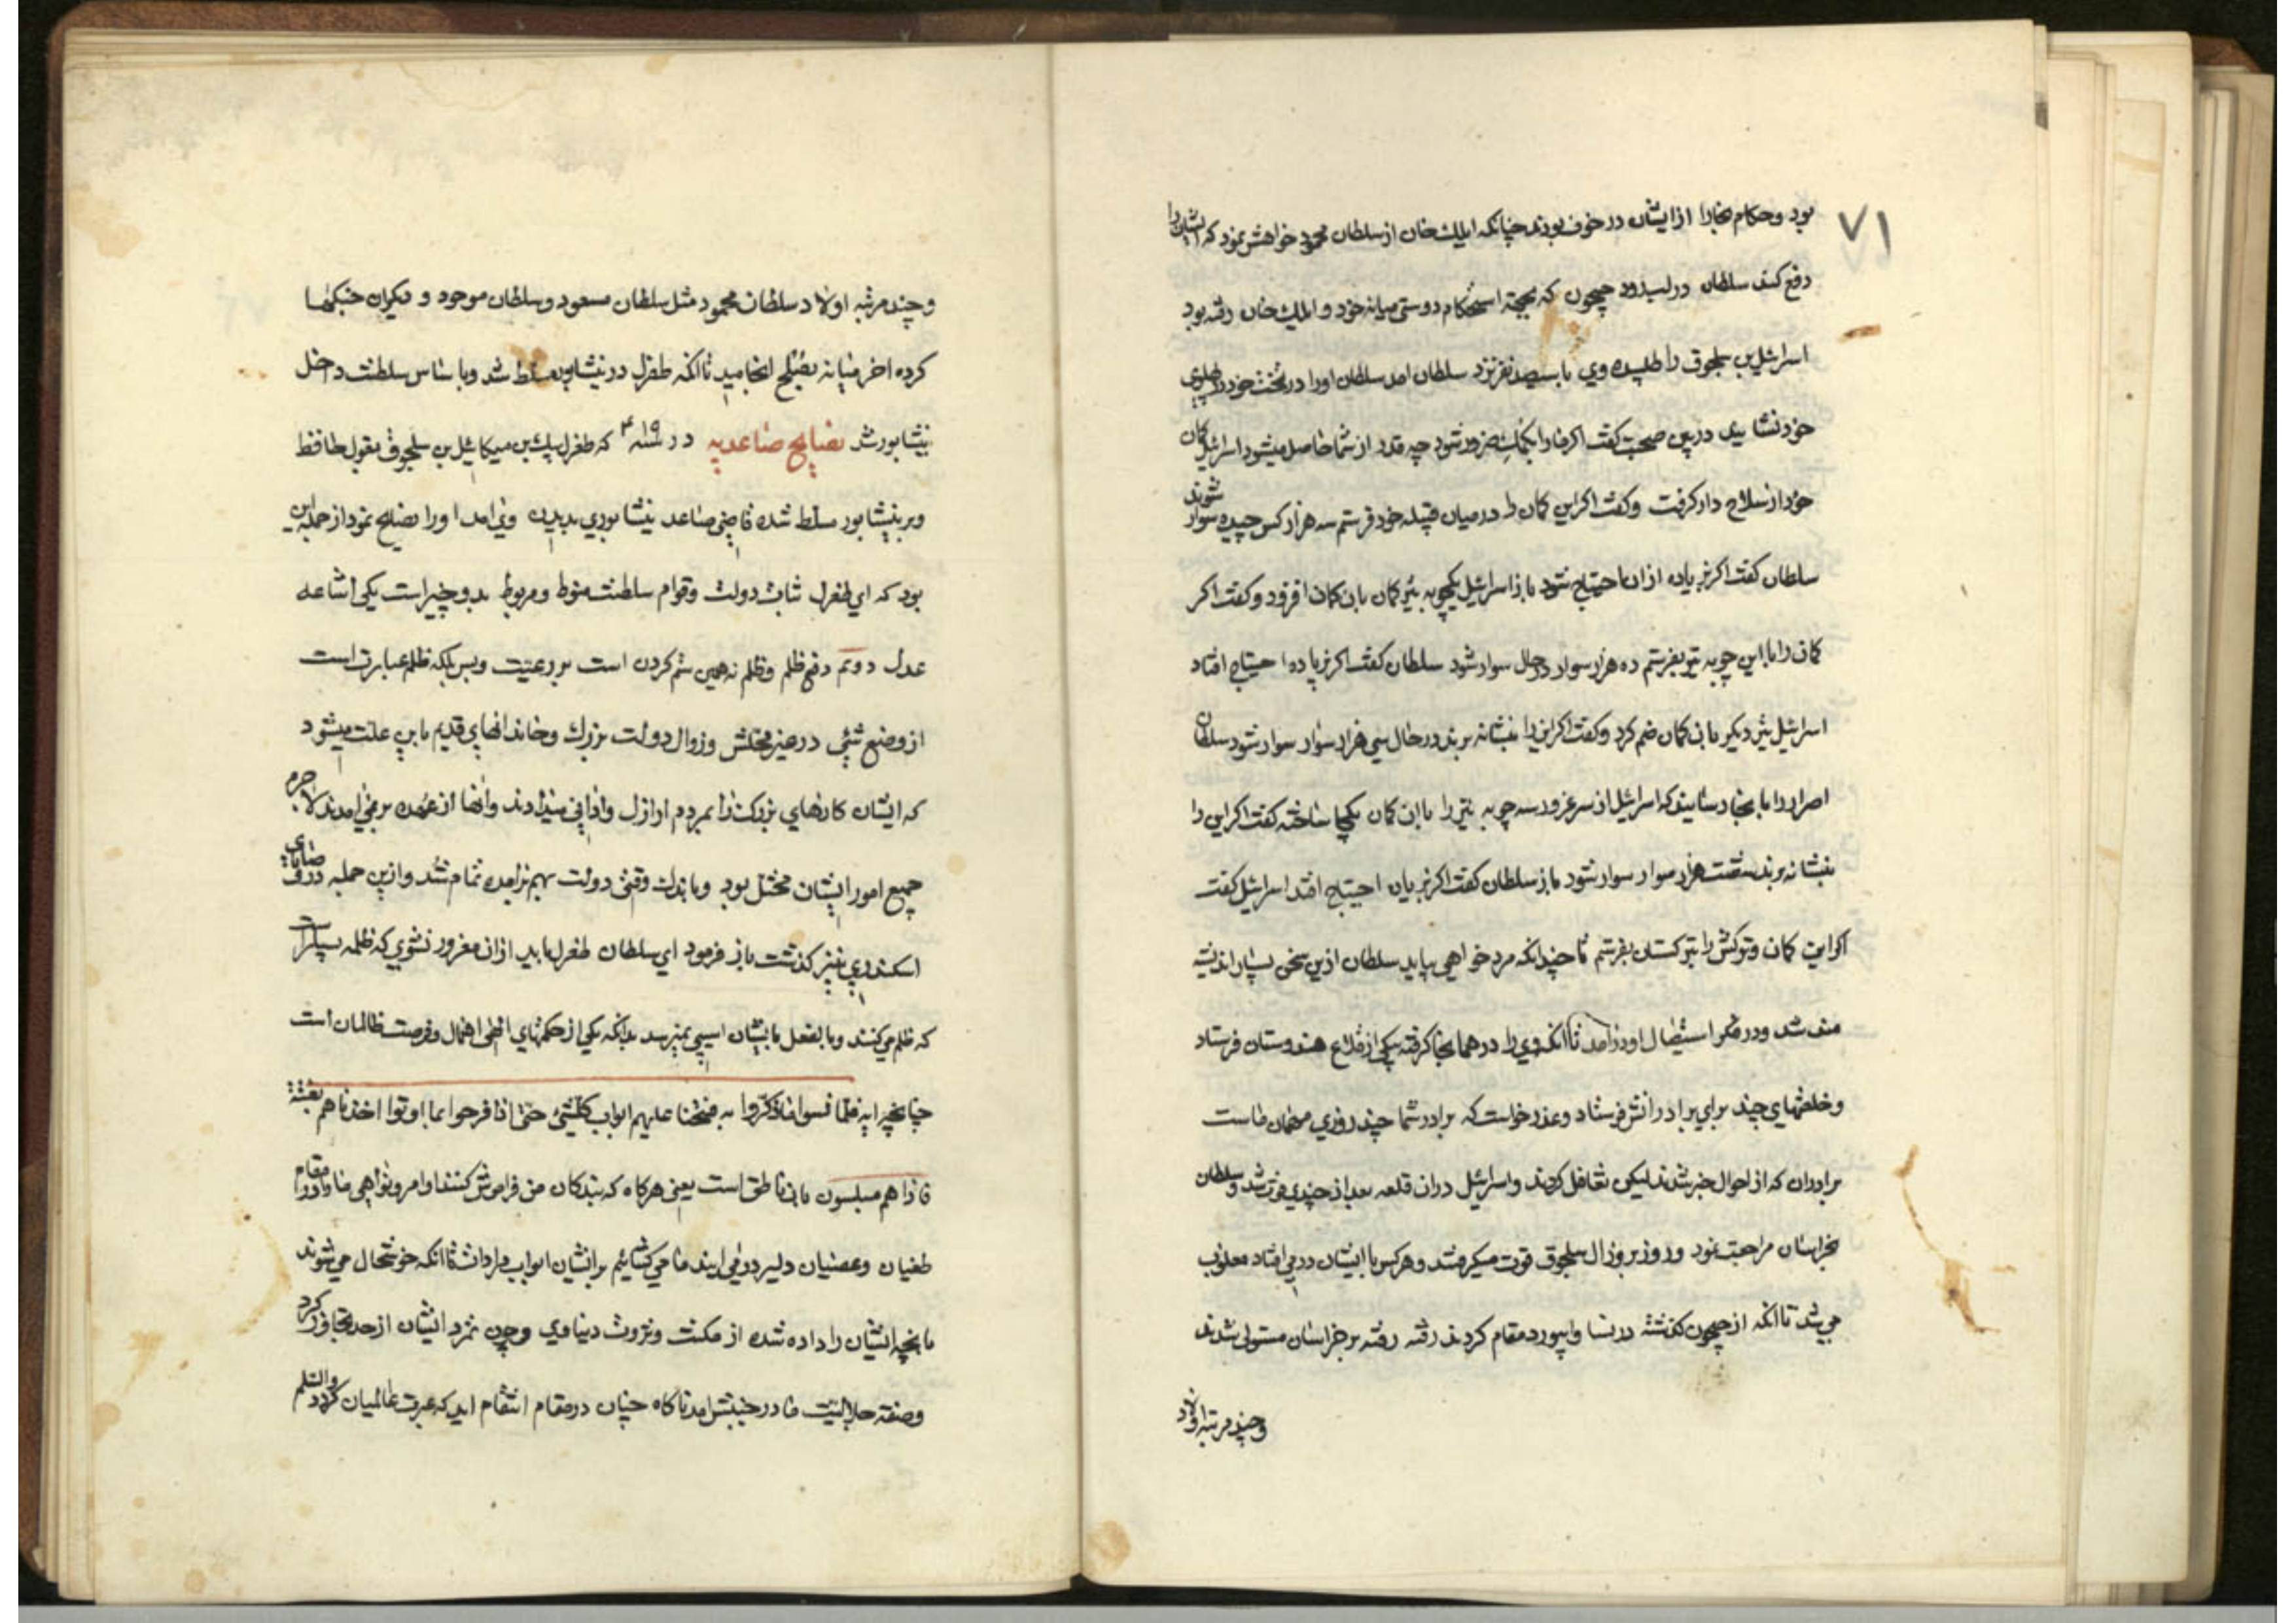 ۷۱
بود و حکام بخارا از ایشان در خوف بودند چنانکه ایلک خان از سلطان محمود خواهش نمود که ایشان را
دفع کند سلطان در لب رود جیحون که بجهة استحکام دوستی میانه خود و ایلک خان رفته بود
اسرائیل بن سلجوق را طلبیده وی با سیصد نفر نزد سلطان امد سلطان اورا در تخت خود در پهلوی
خود نشانید در بین صحبت کفت اکر مارا بکمک ضرور شود چه قدر از شما حاصل میشود اسرائیل کمان
خود از سلاح دار کرفت و کفت اکر این کمان را در میان قبیله خود فرستم سه هزار کس چیده سوار شوند
سلطان کفت اکر زیاده از ان احتیاج شود باز اسرائیل یکچوبه تیر کمان بان کمان افزود و کفت اکر
کمان را با این چوبه تیر بفرستم ده هزار سوار در حال سوار شود سلطان کفت اکر زیاده احتیاج افتاد
اسرائیل تیر دیکر بان کمان ضم کرد و کفت اکر این را بنشانه برند در حال سی هزار سوار سوار شود سلطان
اصرار را بانجا رسانید که اسرائیل از سر غرور سه چوبه تیر را با ان کمان یکجا ساخته کفت اکر این را
بنشانه برند شصت هزار سوار سوار شود باز سلطان کفت اکر زیاده احتیاج افتد اسرائیل کفت
اکر این کمان و ترکش را بترکستان بفرستم تا چندانکه مرد خواهی بیاید سلطان ازین سخن بسیار اندیشه
مند شد و در فکر استیصال او درامد تا انکه وی را در همانجا کرفته بیکی از قلاع هندوستان فرستاد
و خلعتهای چند برای برادرانش فرستاد و عذر خواست که برادر شما چند روزی مهمان ماست
برادران که از احوال خبر شدند لیکن تغافل کردند و اسرائیل دران قلعه بعد از چندی فوت شد و سلطان
بخراسان مراجعت نمود و روز بروز ال سلجوق قوت میکرفتند و هر کس با ایشان در می افتاد مغلوب
می شد تا انکه از جیحون کذشته در نسا و ابیورد مقام کردند رفته رفته بر خراسان مستولی شدند
و چند مرتبه اولاد
و چند مرتبه اولاد سلطان محمود مثل سلطان مسعود و سلطان موجود و دیکران جنکها
کرده اخر میانه بصلح انجامید تا انکه طغرل در نیشابور مسلط شد و باساس سلطنت داخل
نیشابور شد نصایح صاعدیه در سنه ۴۱۹ که طغرل بیک بن میکائیل بن سلجوق بقول حافظ
وبر نیشابور مسلط شده قاضی صاعد نیشابوری بدیدن وی امد اورا نصایح نمود از جمله این
بود که ای طغرل ثبات دولت و قوام سلطنت منوط و مربوط بدو چیز است یکی اشاعه
عدل دویم دفع ظلم و ظلم نه همین ستم کردن است بر رعیت و بس بلکه ظلم عبارت است
از وضع شئی در غیر محلش و زوال دولت بزرک و خاندانهای قدیم باین علت میشود
که ایشان کارهای بزرکت را بمردم اوازل و ادانی میدادند وانها از عهده بر نمی امدند لاجرم
جمیع امور ایشان مختل بود و باندک وقتی دولت بهم برامده تمام شد و ازین جمله در وصایای
اسکندری نیز کذشت باز فرمود ای سلطان طغرل باید ازان مغرور نشوی که ظلمه بسیار است
که ظلم می کنند و بالفعل بایشان اسیبی نمیرسد بدانکه یکی از حکمتهای الهی اهمال و فرصت ظالمان است
چنانچه ایه فلما نسوا ما ذکروا به فتحنا علیهم ابواب کل شئ حتی اذا فرحوا بما اوتوا اخذناهم بغتة
فاذا هم مبلسون بان ناطق است یعنی هرکاه که بندکان من فراموش کنند اوامر و نواهی ما و در مقام
طغیان و عصیان دلیر در می ایند ما می کشائیم بر ایشان ابواب مرادات تا انکه خوشحال می شوند
بانچه ایشان را داده شده از مکنت و ثروت دنیاوی و چون تمرد ایشان از حد تجاوز کرد
وصفت جلالیت ما در جنبش امد ناکاه چنان در مقام انتقام اید که عبرت عالمیان کردد والسلم